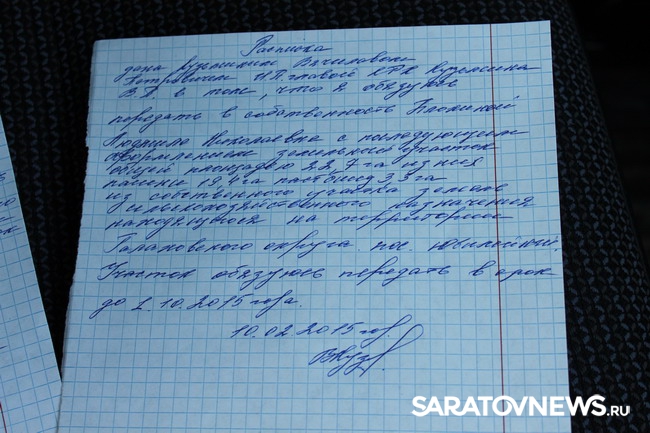 Расписка
дана Кузьминым Вячеславом
Петровичем ИП главой КФХ Кузьмина
В.П. в том, что я обязуюсь
передать в собственность Блохиной
Людмиле Николаевне с последующим
оформлением земельный участок
общей площадью 22,7 га из них
пашни 19,4 га пастбищ 3,3 га
из собственного участка земель
сельскохозяйственного назначения
находящуюся на территории
округа пос. Юбилейный.
Участок обязуюсь передать в срок
до 1.10.2015 года.
10.02.2015 год.
SARATOVNEWS.RU